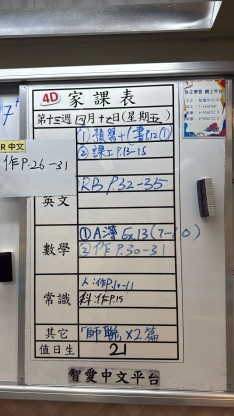 4D 家課表
第十三週 四月十七日(星期五)
①預習+書P.12①
②課工P.13-15
R中文
作P.26-31
RB P.32-35
英文
①A簿 Ex.13(7-10)
數學
②作P.30-31
人:作P.10-11
常識
科:作P.15
其它 「師聯」X2篇
值日生 21
智愛中文平台